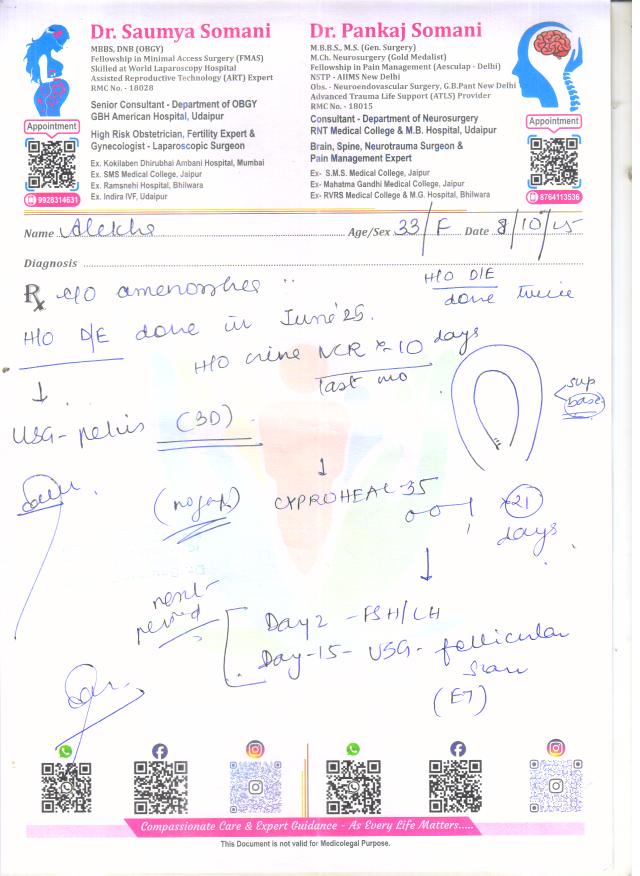 Dr. Saumya Somani
MBBS, DNB (OBGY)
Fellowship in Minimal Access Surgery (FMAS)
Skilled at World Laparoscopy Hospital
Assisted Reproductive Technology (ART) Expert
RMC No. - 18028
Senior Consultant - Department of OBGY
GBH American Hospital, Udaipur
High Risk Obstetrician, Fertility Expert &
Gynecologist - Laparoscopic Surgeon
Ex. Kokilaben Dhirubhai Ambani Hospital, Mumbai
Ex. SMS Medical College, Jaipur
Ex. Ramsnehi Hospital, Bhilwara
Ex. Indira IVF, Udaipur
Appointment
9928314631
Dr. Pankaj Somani
M.B.B.S., M.S. (Gen. Surgery)
M.Ch. Neurosurgery (Gold Medalist)
Fellowship in Pain Management (Aesculap - Delhi)
NSTP - AIIMS New Delhi
Obs. - Neuroendovascular Surgery, G.B.Pant New Delhi
Advanced Trauma Life Support (ATLS) Provider
RMC No. - 18015
Consultant - Department of Neurosurgery
RNT Medical College & M.B. Hospital, Udaipur
Brain, Spine, Neurotrauma Surgeon &
Pain Management Expert
Ex- S.M.S. Medical College, Jaipur
Ex- Mahatma Gandhi Medical College, Jaipur
Ex- RVRS Medical College & M.G. Hospital, Bhilwara
Appointment
8764113536
Name Alekha Age/Sex 33/F Date 8/10/25
Diagnosis
Rx c/o amenorrhea
H/O D/E
done twice
H/O D/E done in June'25.
H/O crine NCR x 10 days
last mo
sup
base
USG-pelvis (3D)
(no gap) CYPROHEAL-35
x 21
days
next
period
Day 2 - FSH/LH
Day-15- USG- follicular
scan
(ET)
Compassionate Care & Expert Guidance - As Every Life Matters.....
This Document is not valid for Medicolegal Purpose.